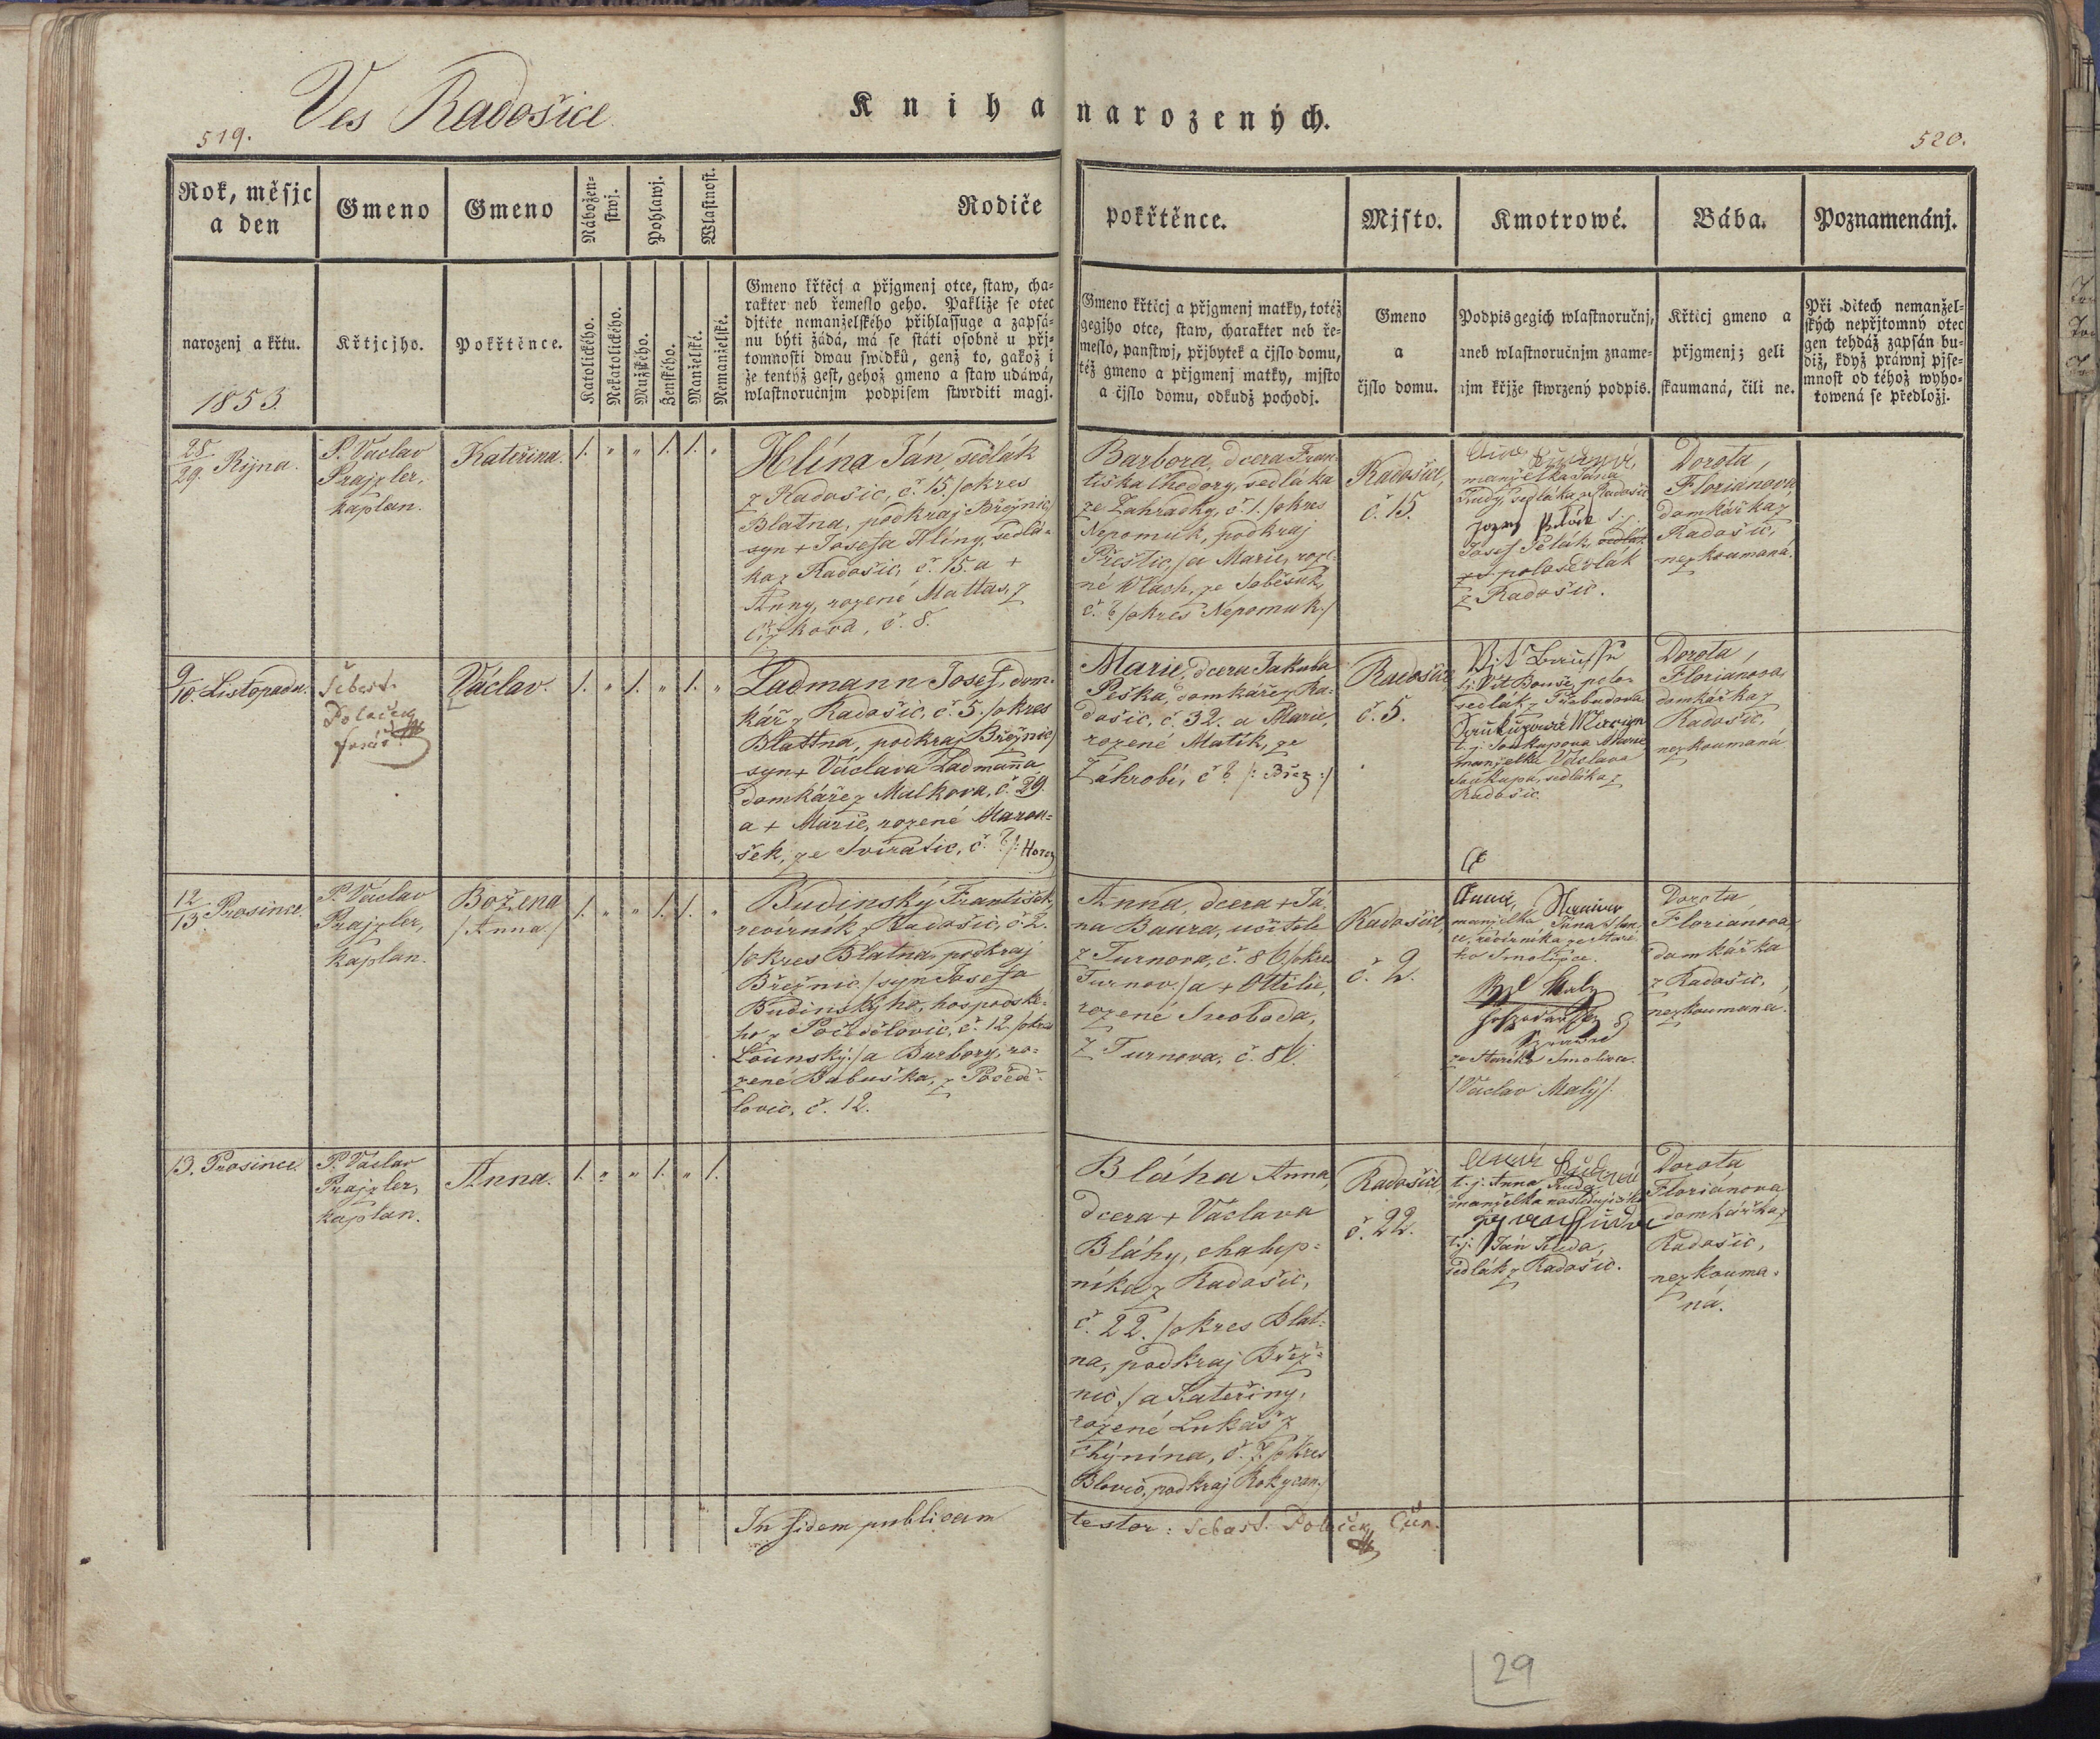 Ves Radošice
519.
Kniha narozených.
520.
Rok, měsjc
a den
Gmeno
Gmeno
Nábožen-
stwj.
Pohlawj.
Wlastnost.
Rodiče
pokřtěnce.
Mjsto.
Kmotrowé.
Bába.
Poznamenánj.
narozenj a křtu.
1853.
Křtjcjho.
Pokřtěnce.
Katolického.
Nekatolického.
Mužského.
Ženského.
Manželské.
Nemanželské.
Gmeno křtěcj a přjgmenj otce, staw, cha-
rakter neb řemeslo geho. Pakliže se otec
djtěte nemanželského přihlassuge a zapsá-
nu býti žádá, má se státi osobně u přj-
tomnosti dwau swědků, genž to, gakož i
že tentýž gest, gehož gmeno a staw udáwá,
wlastnoručnjm podpisem stwrditi magj.
Gmeno křticj a přjgmenj matky, totéž
gegjho otce, staw, charakter neb ře-
meslo, panstwj, přjbytek a čjslo domu,
též gmeno a přjgmenj matky, mjsto
a čjslo domu, odkudž pochodj.
Gmeno
a
čjslo domu.
Podpis gegich wlastnoručnj,
aneb wlastnoručnjm zname-
njm křjže stwrzený podpis.
Křticj gmeno a
přjgmenj; geli
skaumaná, čili ne.
Při dětech nemanžel-
ských nepřjtomný otec
gen tehdáž zapsán bu-
diž, když práwnj pjse-
mnost od téhož wyho-
towená se předložj.
28
29. Října.
P. Václav
Prajzler,
kaplan.
Kateřina.
1. „ „ 1. 1. „
Hlína Ján, sedlák
z Radošic, č. 15. /okres
Blatna, podkraj Březnic/
syn + Josefa Hlíny, sedlá-
ka z Radošic, č. 15. a +
Anny, rozené Mattas, z
č. 8.
Barbora, dcera Fran-
tiška Chodory, sedláka
ze Zahrádky, č. 1. /okres
Nepomuk, podkraj
Přeštic,/ a Marie, roze-
né Wlach, ze Soběsuk,
č. ? /okres Nepomuk./
Radošice,
č. 15.
manželka Jána
Rudy, sedláka z Radošic
Josef Pěták, sedlák
polosedlák
z Radošic.
Dorota
Floriánova
domkářka z
Radošic,
nezkoumaná.
9
10. Listopadu.
Šebest.
Polaček
farář.
Václav.
1. „ 1. „ 1. „
Ladmann Josef, dom-
kář z Radošic, č. 5. /okres
Blattna, podkraj Březnic/
syn + Václava Ladmaňa
domkáře z Málkova, č. 29.
a + Marie, rozené Maron-
šek, ze Svíratic, č. ? /: Horaž
Marie, dcera Jakuba
Peška, domkáře z Ra-
došic, č. 32. a Marie,
rozené Matík, ze
Záhrobí, č. ? /: Břez :/
Radošice,
č. 5.
t.j. Vít Bouše, polo-
sedlák z Třebudova
t.j. Soukupova Marie
manželka Václava
Soukupa, sedláka z
Radošic.
Dorota
Floriánova,
domkářka z
Radošic,
nezkoumaná
12
13. Prosince.
P. Václav
Prajzler,
kaplan.
Božena
/Anna/
1. „ „ 1. 1. „
Budinský František,
revírník z Radošic, č. 2.
/okres Blatna, podkraj
Březnic,/ syn Josefa
Budinského, hospodské-
ho z Počedělovic, č. 12. /okres
Lounský:/ a Barbory, ro-
zené Babuška, z Počeď-
lovic, č. 12.
Anna, dcera + Já-
na Baura, učitele
z Turnova, č. 86 /okres
Turnov./ a + Ottilie,
rozené Swoboda,
z Turnova, č. 86.
Radošice,
č. 2.
Anna,
manželka Jána
revírníka ze Staré-
ho Smolivce.
ze Starého Smolivce.
/Václav Malý/
Dorota
Floriánova
domkářka
z Radošic,
nezkoumana.
13. Prosince.
P. Václav
Prajzler,
kaplan.
Anna.
1. „ „ 1. „ 1.
Bláha Anna,
dcera + Václava
Bláhy, chalup-
níka z Radošic,
č. 22. /okres Blat-
na, podkraj Břez-
nic./ a Kateřiny,
rozené Lukáš z
Chýnína, č. ? /okres
Blovic, podkraj Rokycan./
Radošice,
č. 22.
t.j. Anna Ruda
manželka následujícího
t.j. Ján Ruda,
sedlák z Radošic.
Dorota
Floriánova
domkářka z
Radošic,
nezkouma-
ná.
In fidem publicam testor: Sebast. Polaček, Cur.
29